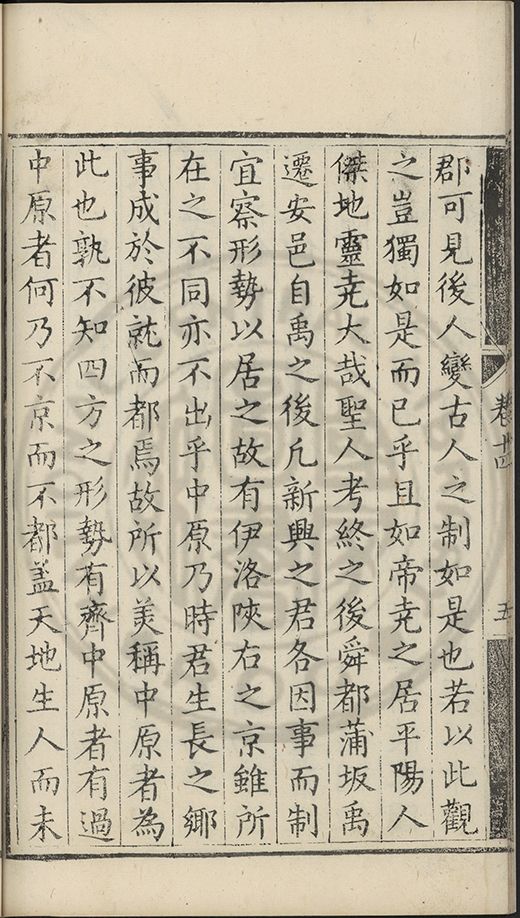 郡可見後人變古人之制如是也若以此觀
之豈獨如是而已乎且如帝尭之居平陽人
傑地靈尭大哉聖人考終之後舜都蒲坂禹
遷安邑自禹之後凢新興之君各因事而制
宜察形勢以居之故有伊洛陜右之京雖所
在之不同亦不出乎中原乃時君生長之郷
事成於彼就而都焉故所以美稱中原者為
此也孰不知四方之形勢有齊中原者有過
中原者何乃不京而不都盖天地生人而未
卷十四
五